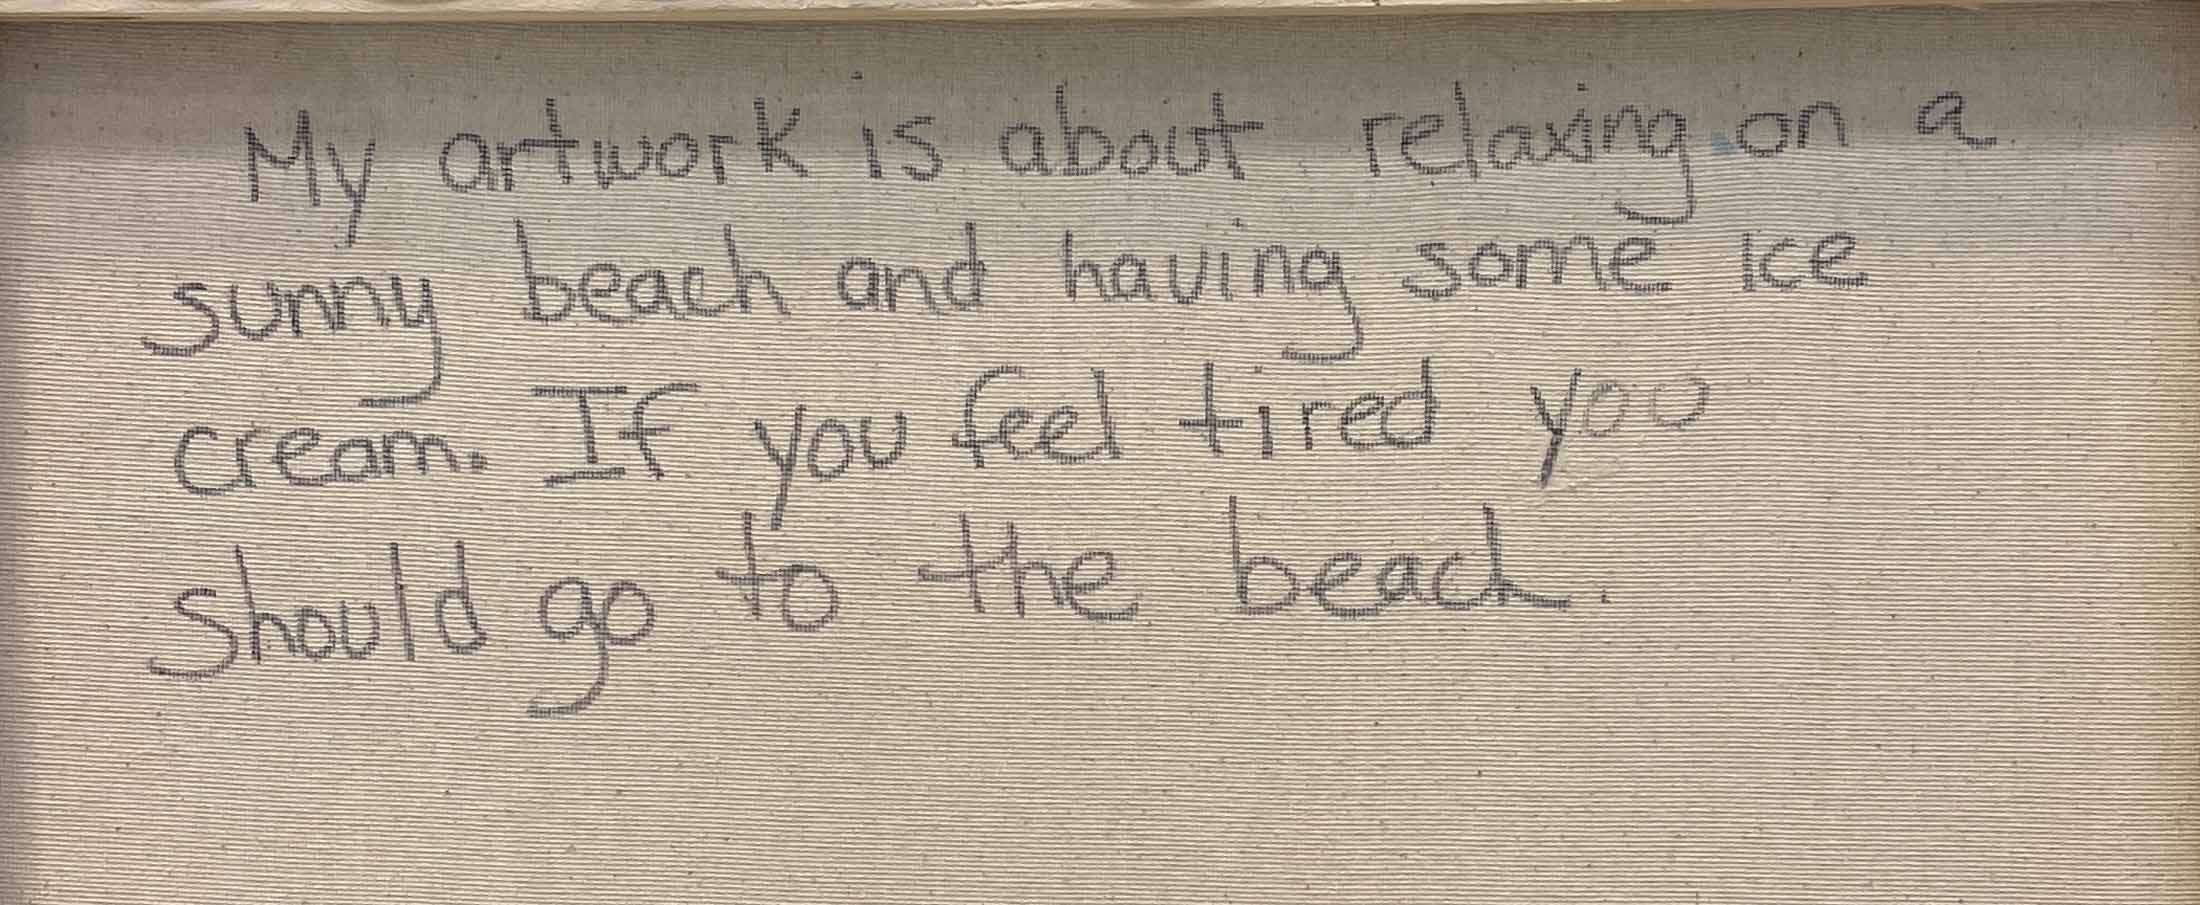 My artwork is about relaxing on a
sunny beach and having some ice
cream. If you feel tired you
should go to the beach.